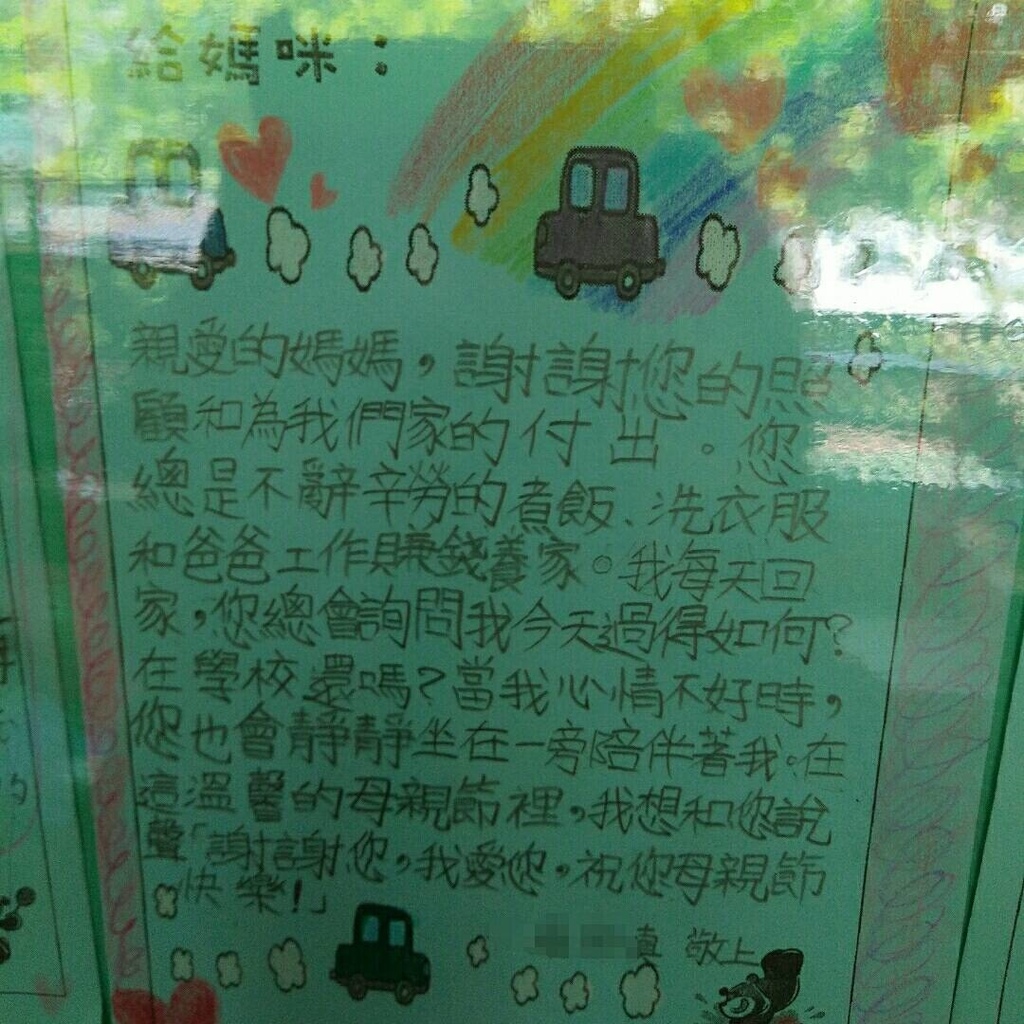 給媽咪：
親愛的媽媽，謝謝您的照
顧和為我們家的付出。您
總是不辭辛勞的煮飯、洗衣服
和爸爸工作賺錢養家。我每天回
家，您總會詢問我今天過得如何？
在學校還嗎？當我心情不好時，
您也會靜靜坐在一旁陪伴著我。在
這溫馨的母親節裡，我想和您說
聲「謝謝您，我愛您，祝您母親節
快樂！」
真 敬上